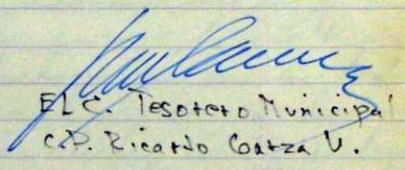 EL C. Tesorero Municipal
C.P. Ricardo Garza V.